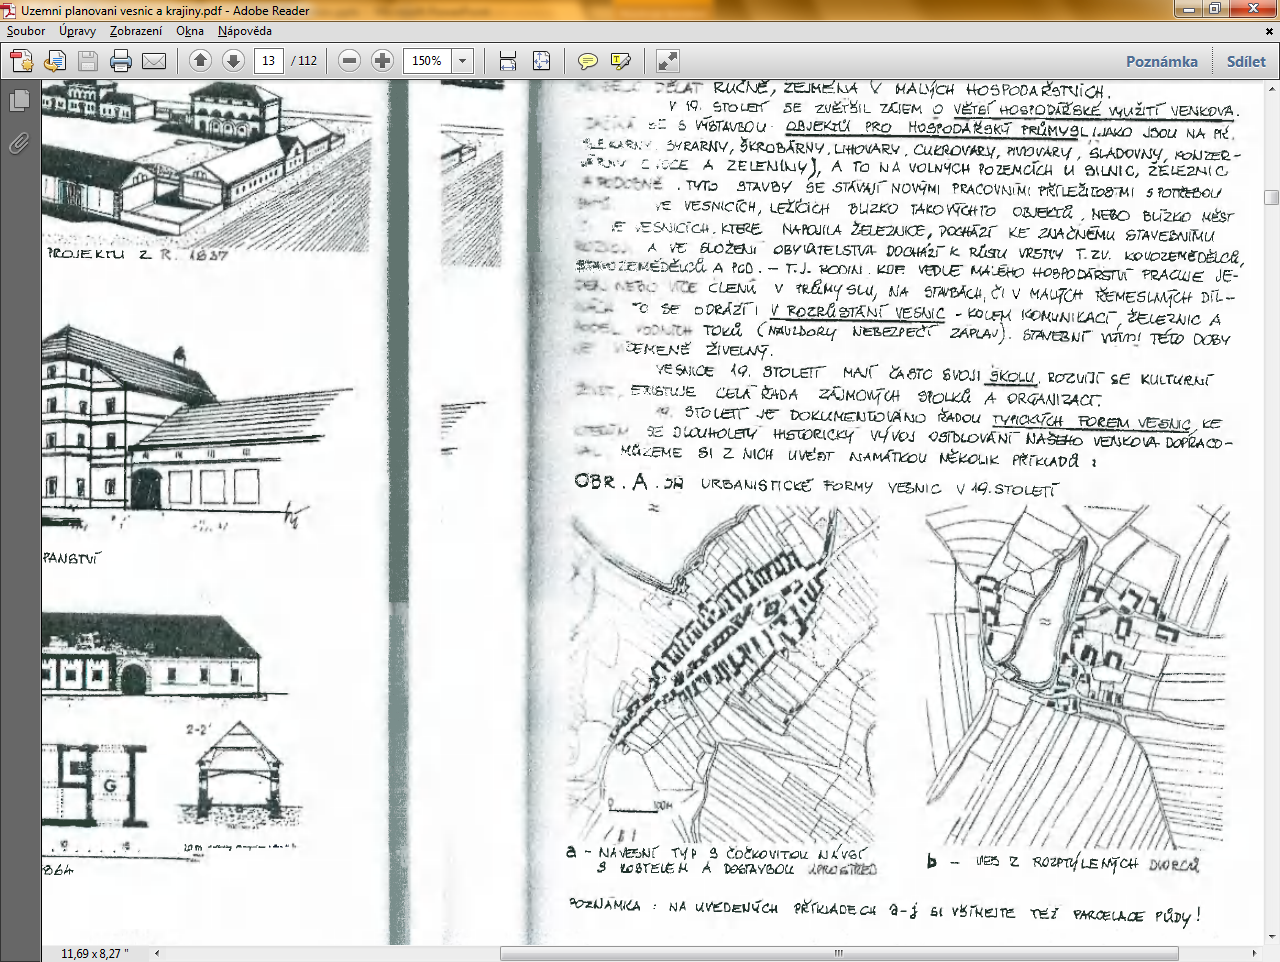 Uzemni planovani vesnic a krajiny.pdf - Adobe Reader
Soubor Úpravy Zobrazení Okna Nápověda
13 / 112 150% Poznámka Sdílet
PROJEKTU Z R. 1837
PANSTVÍ
2-2'
G
10 15
10 m
1864
DĚLAT RUČNĚ, ZEJMÉNA V MALÝCH HOSPODÁŘSTVÍCH.
V 19. STOLETÍ SE ZVĚTŠIL ZÁJEM O VĚTŠÍ HOSPODÁŘSKÉ VYUŽITÍ VENKOVA.
SE S VÝSTAVBOU OBJEKTŮ PRO HOSPODÁŘSKÝ PRŮMYSL (JAKO JSOU NA PŘ.
SYRÁRNY, ŠKROBÁRNY, LIHOVARY, CUKROVARY, PIVOVARY, SLADOVNY, KONZER-
OVOCE A ZELENINY), A TO NA VOLNÝCH POZEMCÍCH U SILNIC, ŽELEZNIC
A PODOBNĚ. TYTO STAVBY SE STÁVAJÍ NOVÝMI PRACOVNÍMI PŘÍLEŽITOSTMI S POTŘEBOU
VE VESNICÍCH, LEŽÍCÍCH BLÍZKO TAKOVÝCHTO OBJEKTŮ, NEBO BLÍZKO MĚST
VE VESNICÍCH, KTERÉ NAPOJILA ŽELEZNICE, DOCHÁZÍ KE ZNAČNÉMU STAVEBNÍMU
ROZVOJI A VE SLOŽENÍ OBYVATELSTVA DOCHÁZÍ K RŮSTU VRSTVY T.ZV. KOVOZEMĚDĚLCŮ,
STAVOZEMĚDĚLCŮ A POD. - T.J. RODIN, KDE VEDLE MALÉHO HOSPODÁŘSTVÍ PRACUJE JE-
DEN NEBO VÍCE ČLENŮ V PRŮMYSLU, NA STAVBÁCH, ČI V MALÝCH ŘEMESLNÝCH DÍL-
NÁCH. TO SE ODRÁŽÍ I V ROZRŮSTÁNÍ VESNIC - KOLEM KOMUNIKACÍ, ŽELEZNIC A
PODÉL VODNÍCH TOKŮ (NAVZDORY NEBEZPEČÍ ZÁPLAV). STAVEBNÍ VÝVOJ TÉTO DOBY
JE VÍCEMÉNĚ ŽIVELNÝ.
VESNICE 19. STOLETÍ MAJÍ ČASTO SVOJI ŠKOLU, ROZVÍJÍ SE KULTURNÍ
ŽIVOT, EXISTUJE CELÁ ŘADA ZÁJMOVÝCH SPOLKŮ A ORGANIZACÍ.
19. STOLETÍ JE DOKUMENTOVÁNO ŘADOU TYPICKÝCH FOREM VESNIC, KE
KTERÝM SE DLOUHOLETÝ HISTORICKÝ VÝVOJ OSÍDLOVÁNÍ NAŠEHO VENKOVA DOPRACO-
VAL. MŮŽEME SI Z NICH UVÉST NAMÁTKOU NĚKOLIK PŘÍKLADŮ:
OBR. A. URBANISTICKÉ FORMY VESNIC V 19. STOLETÍ
0 100 M
a - NÁVESNÍ TYP S ČOČKOVITOU NÁVSÍ
S KOSTELEM A DOSTAVBOU UPROSTŘED
b - VES Z ROZPTÝLENÝCH DVORCŮ
POZNÁMKA: NA UVEDENÝCH PŘÍKLADECH a-j SI VŠÍMEJTE TÉŽ PARCELACE PŮDY!
11,69 x 8,27 "